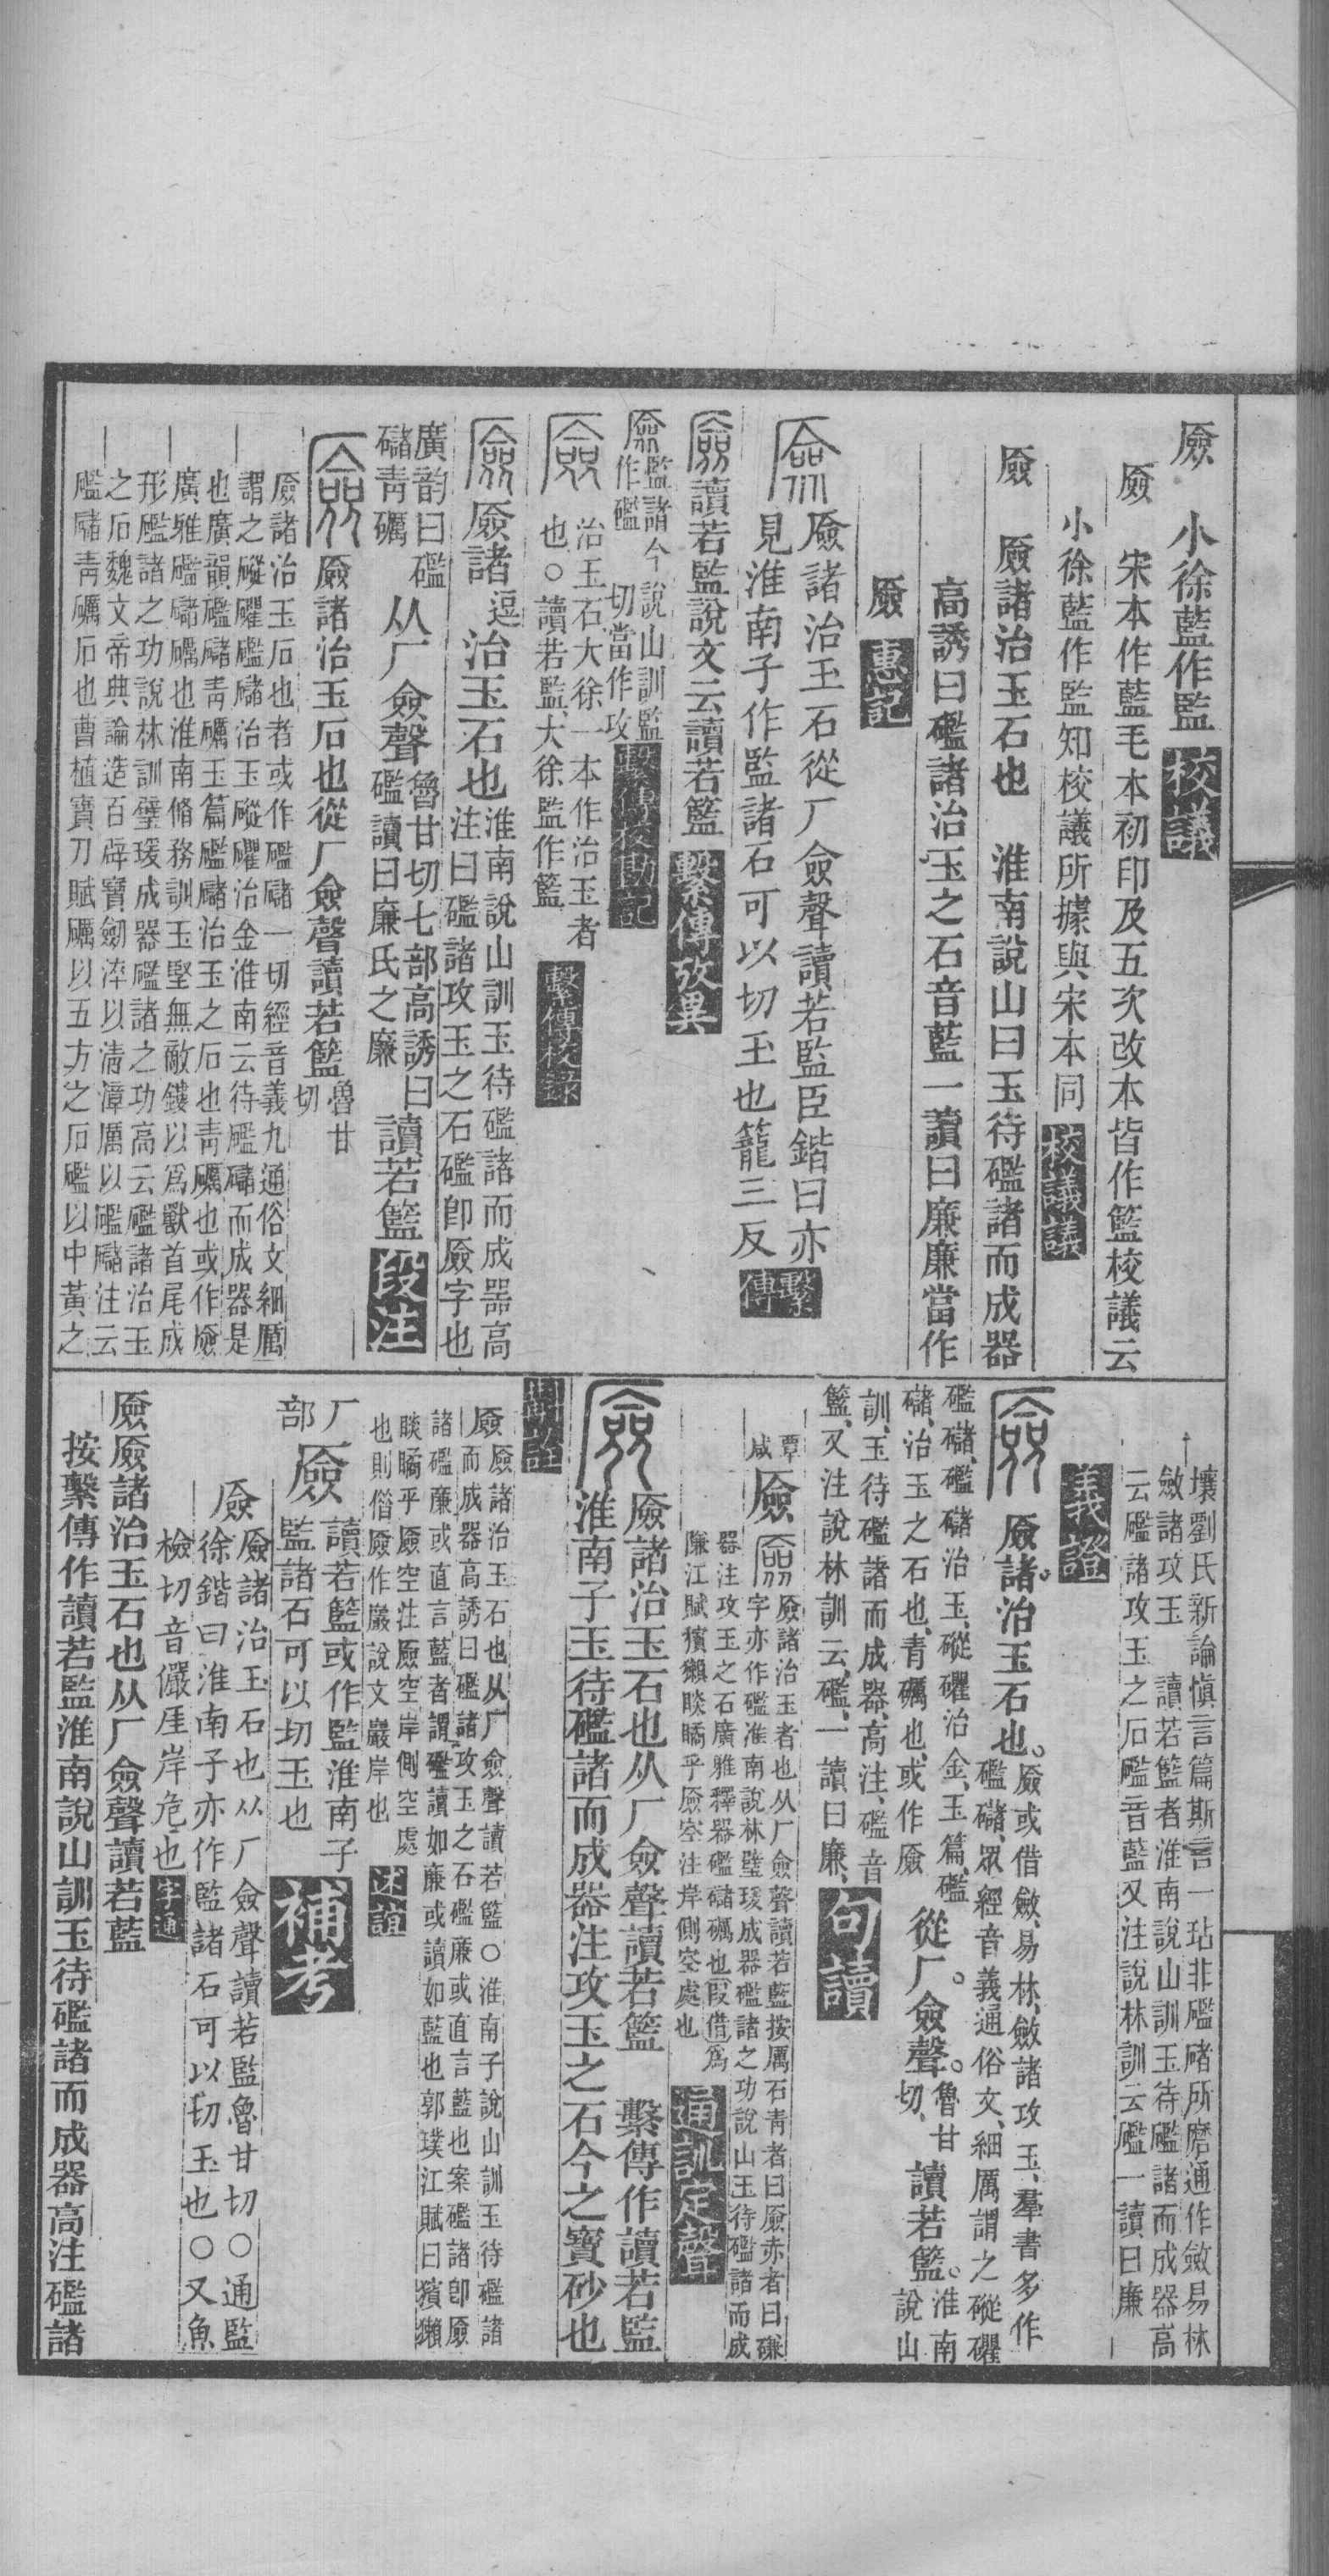 厱 小徐藍作監 校議
厱 宋本作藍毛本初印及五次改本皆作籃校議云
小徐藍作監知校議所據與宋本同 校議議
厱 厱諸治玉石也 淮南說山曰玉待礛諸而成器
高誘曰礛諸治玉之石音藍一讀曰廉廉當作
厱 惠記
厱諸治玉石從厂僉聲讀若監臣鍇曰亦
見淮南子作監諸石可以切玉也籠三反 繫傳
讀若監說文云讀若籃 繫傳攷異
監諸今說山訓監
作礛 切當作攻 繫傳校勘記
治玉石大徐一本作治玉者
也○讀若監大徐監作籃 繫傳校錄
厱諸逗治玉石也
淮南說山訓玉待礛諸而成器高
注曰礛諸攻玉之石礛卽厱字也
廣韵曰礛
䃴青礪
从厂僉聲
魯甘切七部高誘曰
礛讀曰廉氏之廉
讀若籃 段注
厱諸治玉石也從厂僉聲讀若籃
魯甘
切
厱諸治玉石也者或作礛䃴一切經音義九通俗文細厲
謂之䃔礭礛䃴治玉䃔礭治金淮南云待礛䃴而成器是
也廣韻礛䃴青礪玉篇礛䃴治玉之石也青礪也或作厱
廣雅礛䃴礪也淮南脩務訓玉堅無敵鏤以爲獸首尾成
形礛諸之功說林訓璧瑗成器礛諸之功高云礛諸治玉
之石魏文帝典論造百辟寶劒淬以清漳厲以礛䃴注云
礛䃴青礪石也曹植寶刀賦礪以五方之石礛以中黃之
壤劉氏新論愼言篇斯言一玷非礛䃴所磨通作斂易林
斂諸攻玉 讀若籃者淮南說山訓玉待礛諸而成器高
云礛諸攻玉之石礛音藍又注說林訓云礛一讀曰廉
義證
厱諸治玉石也
厱或借斂易林斂諸攻玉羣書多作
礛䃴眾經音義通俗文細厲謂之䃔礭
礛䃴礛䃴治玉䃔礭治金玉篇礛
䃴治玉之石也青礪也或作厱
從厂僉聲
魯甘
切
讀若籃
淮南
說山
訓玉待礛諸而成器高注礛音
籃又注說林訓云礛一讀曰廉 句讀
覃
咸
厱
厱諸治玉者也从厂僉聲讀若藍按厲石青者曰厱赤者曰磏
字亦作礛淮南說林璧瑗成器礛諸之功說山玉待礛諸而成
器注攻玉之石廣雅釋器礛䃴礪也叚借爲
廉江賦獱獺睒瞲乎厱空注岸側空處也 通訓定聲
厱諸治玉石也从厂僉聲讀若籃 繫傳作讀若監
淮南子玉待礛諸而成器注攻玉之石今之寶砂也
厱諸治玉石也从厂僉聲讀若籃○淮南子說山訓玉待礛諸
而成器高誘曰礛諸攻玉之石礛廉或直言藍也案礛諸卽厱
諸礛廉或直言藍者謂礛讀如廉或讀如藍也郭璞江賦曰獱獺
睒瞲乎厱空注厱空岸側空處
也則借厱作巖說文巖岸也 述誼
厂
部
厱
讀若籃或作監淮南子
監諸石可以切玉也 補考
厱
厱諸治玉石也从厂僉聲讀若監魯甘切○通監
徐鍇曰淮南子亦作監諸石可以切玉也○又魚
檢切音儼厓岸危也 字通
厱厱諸治玉石也从厂僉聲讀若藍
按繫傳作讀若監淮南說山訓玉待礛諸而成器高注礛諸